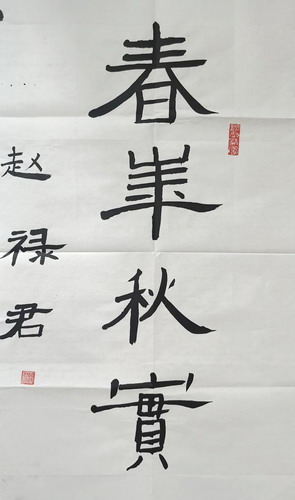 春華秋實
赵禄君